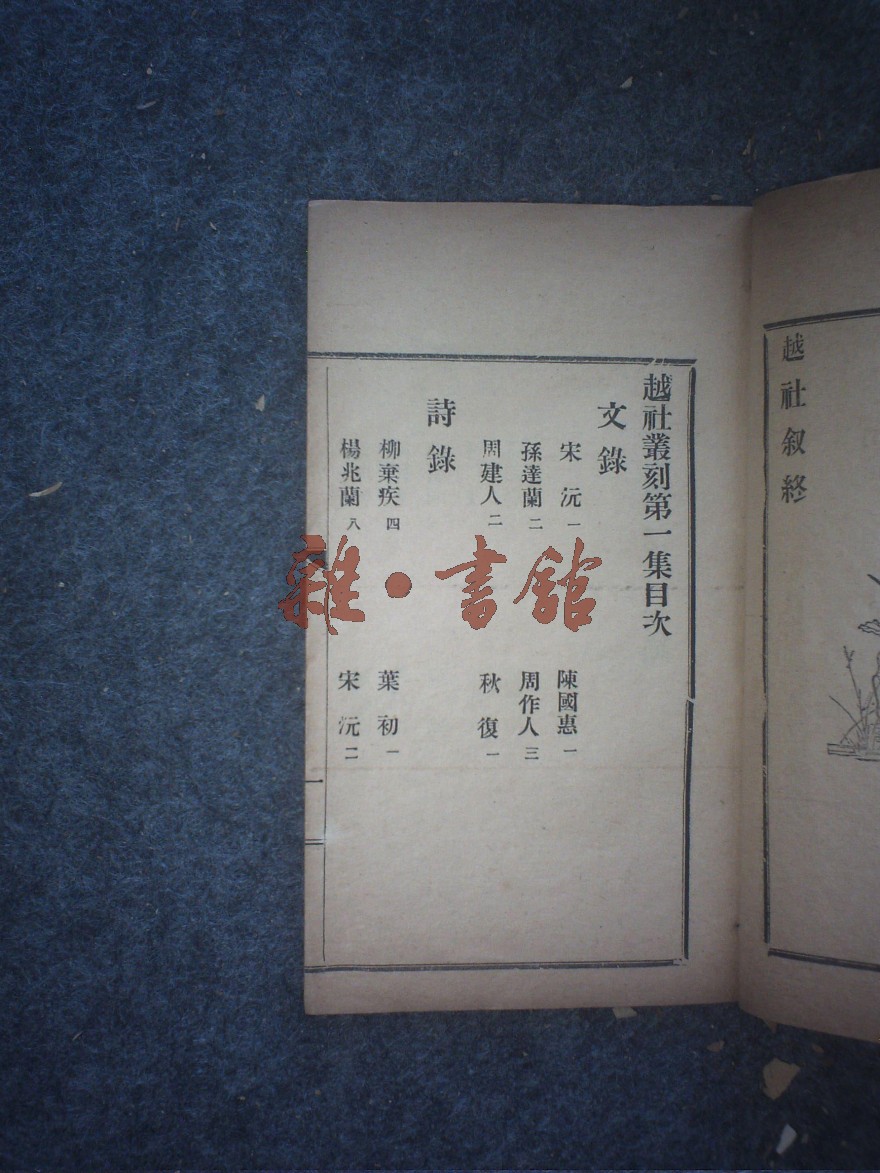 越社叙終
越社叢刻第一集目次
文錄
宋沅一 陳國惠一
孫達蘭二 周作人三
周建人二 秋復一
詩錄
柳棄疾四 葉初一
楊兆蘭八 宋沅二
雜·書館